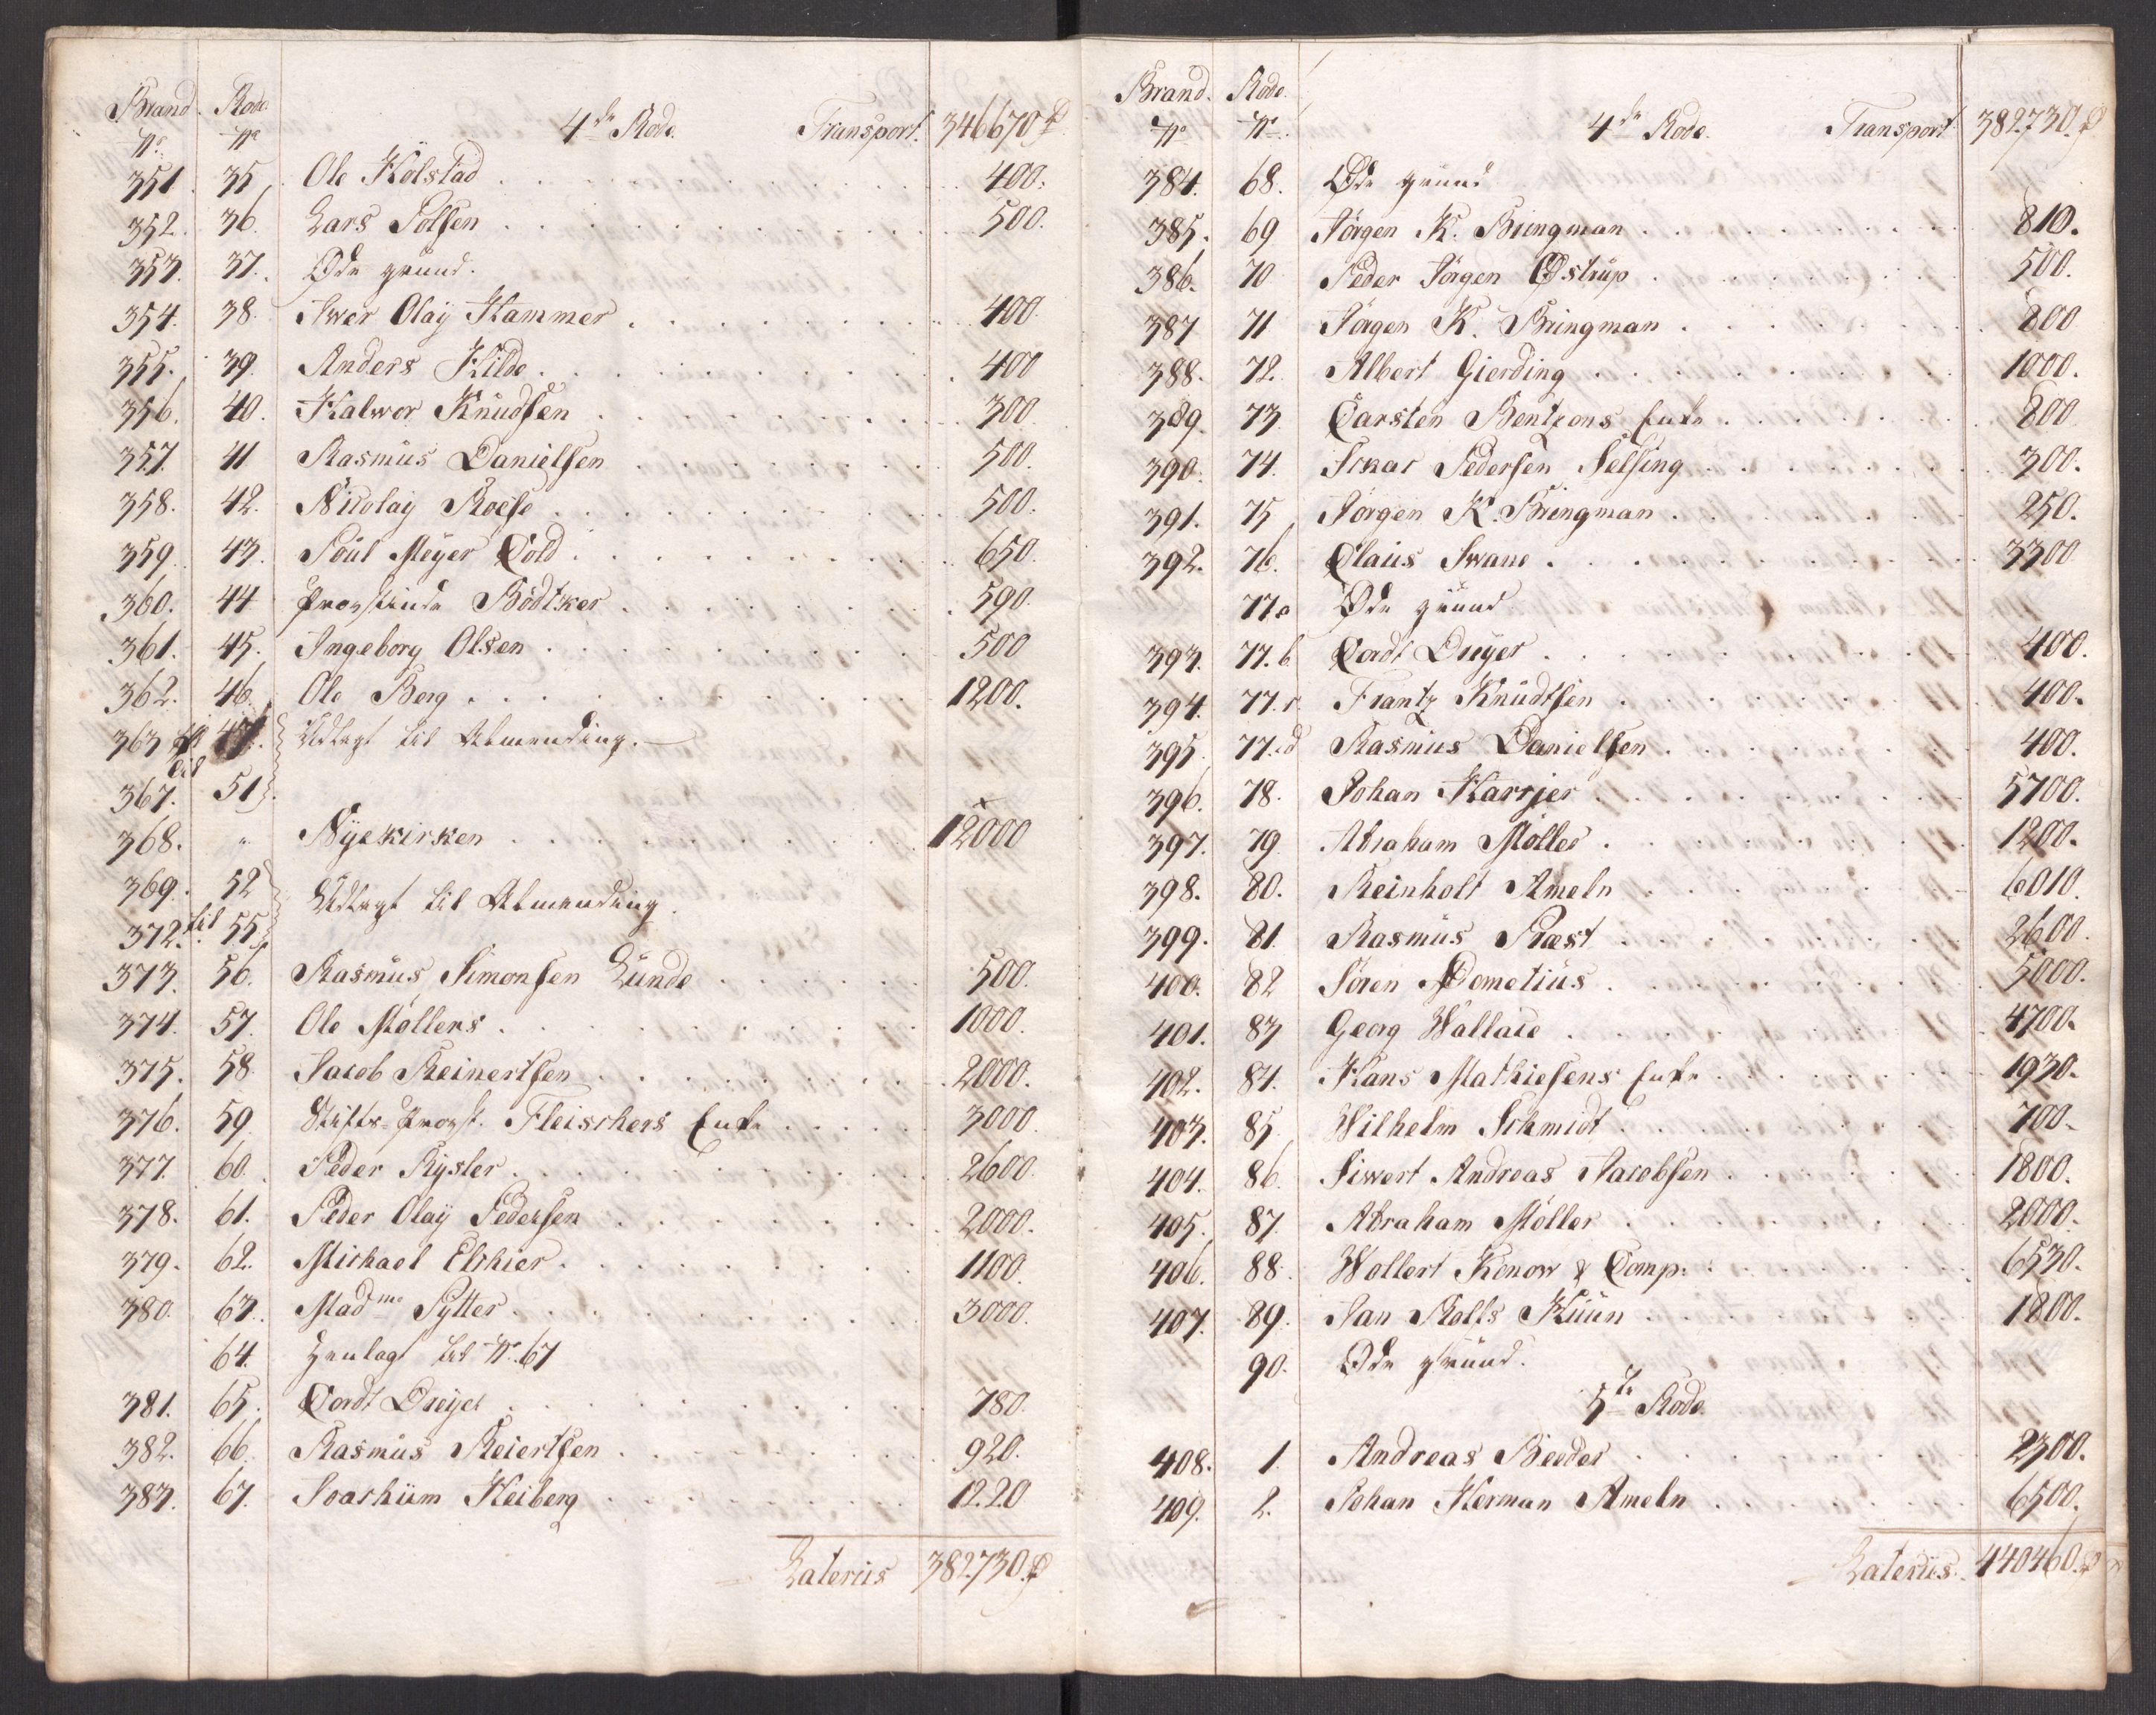 Brand Rode
No No 4de Rode. Transport. 346670 rd
351. 35. Ole Kolstad 400.
352. 36. Lars Polsen 500.
353. 37. Øde grund.
354. 38. Iwer Olaij Hammer 400
355. 39. Anders Kilde 400
356. 40. Halwor Knudsen 300
357. 41 Rasmus Danielsen 500.
358. 42. Nikolaij 500.
359. 43. Poul Meyer Cold 650.
360. 44 Provstinde Bødtker 590.
361. 45. Ingeborg Olsen 500
362. 46. Ole Berg 1200.
363 47. Udlagt til Almending.
til
367. 51
368. " Nyekirken 12000
369. 52 Udlagt til Almending.
372. til 55
373. 56. Rasmus Simonsen Lunde 500.
374. 57. Ole Møllers 1000.
375. 58. Jacob Reinertsen 2000.
376. 59. Stifts-Provst. Fleischers Enke 3000.
377. 60. Peder Rysler 2600.
378. 61. Peder Olaij Pedersen 2000.
379. 62. Michael 1100.
380. 63. Madme Pytter 3000.
64. Henlagt til No. 67
381. 65. Cordt Dreyer 780.
382. 66. Rasmus Reiertsen 920.
383. 67. Joachum Heiberg 1220
Lateriis 382730. rd
Brand. Rode.
No No 4de Rode. Transport 382730. rd
384. 68. Øde grund
385. 69 Jörgen K. Bringman 810.
386. 70 Peder Jörgen Østrup 500.
387 71 Jörgen K. Bringman 800
388. 72. Albert Gierding 1000.
389. 73. Carsten Bentzons Enke 800
390. 74. Pedersen Selsing 300.
391. 75 Jörgen K. Bringman 250.
392. 76. Claus Swane 3300
77.a Øde grund
393. 77.b Cordt Dreyer 400.
394. 77.c Frantz Knudtsen 400.
395 77.d Rasmus Danielsen 400.
396. 78. Johan Harrjer 5700.
397. 79 Abraham Møller 1200.
398. 80. Reinholt Ameln 6010.
399. 81. Rasmus Rœst 2600.
400. 82 Sören Dometius 5000.
401. 83 Georg Wallace 4700.
402. 84. Hans Mathiesens Enke 1930.
403. 85 Wilhelm Schmidt 700.
404. 86. Siwert Andreas Jacobsen 1800.
405. 87. Abraham Møller 2000.
406. 88. Wollert Konow & Comp. 6530.
407. 89. Jan Rolfs Kuun 1800.
90. Øde grund.
5te Rode.
408. 1. Andreas Beeder 2300.
409. 2. Johan Herman Ameln 6500.
Lateriis. 440460. rd